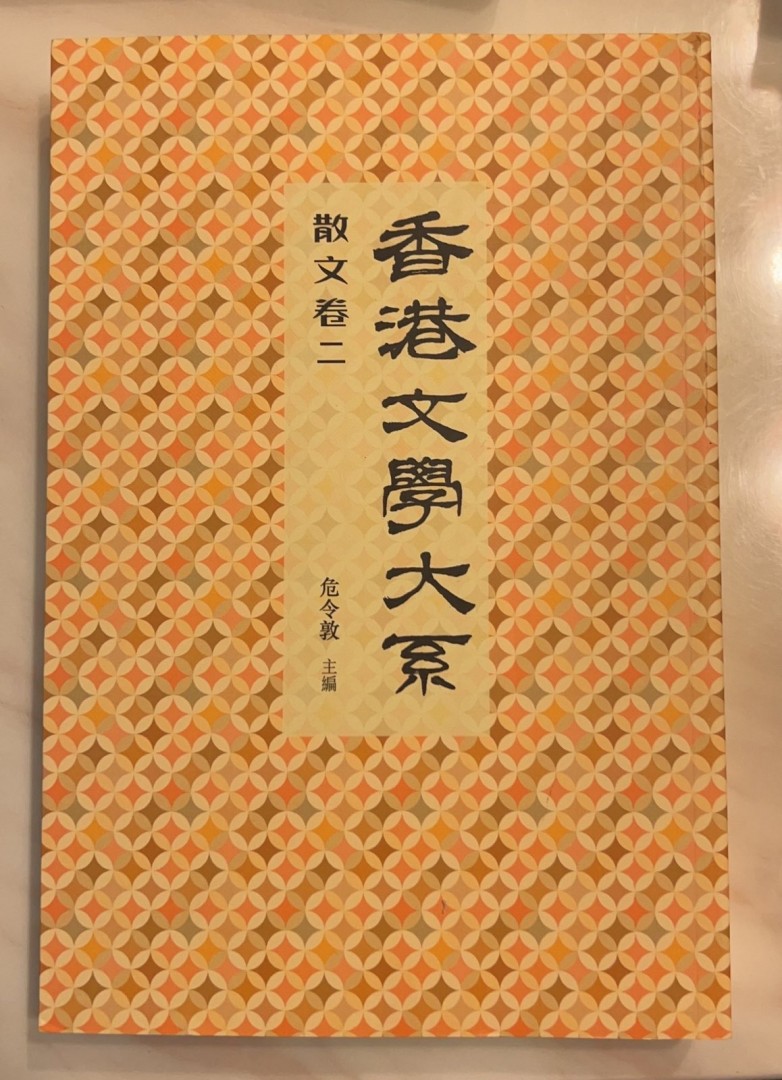 香港文學大系
散文卷二
危令敦 主編